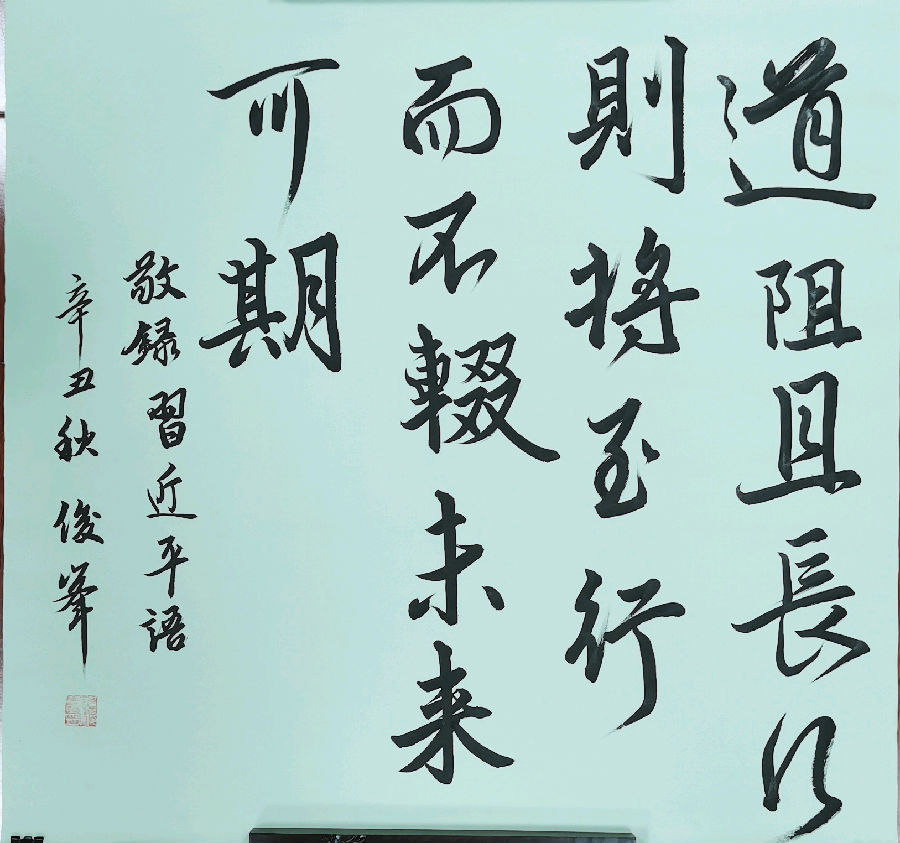 道阻且長行
則將至行
而不輟未来
可期
敬録習近平語
辛丑秋俊峯